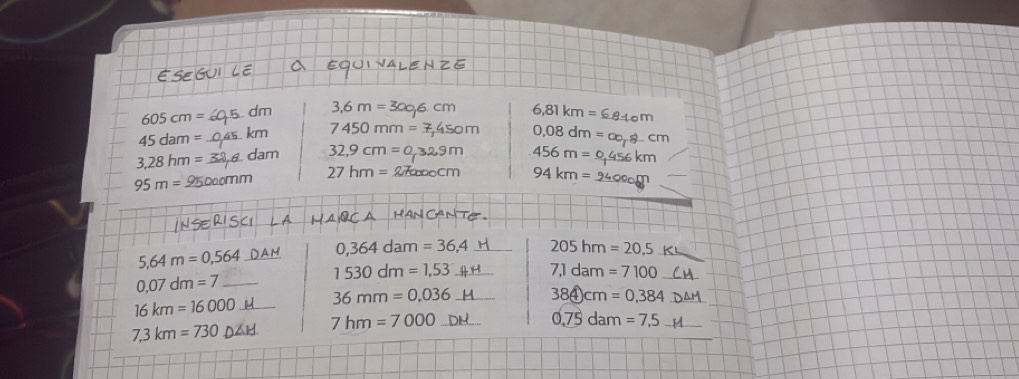 ESEGUI LE EQUIVALENZE
605 cm = 60,5 dm
45 dam = 0,45 km
3,28 hm = 32,8 dam
95 m = 95000mm
3,6 m = cm
7 450 mm = 7,450 m
32,9 cm = 0,329 m
27 hm = cm
6,81 km = 6810m
0,08 dm = cm
456 m = 0,456 km
94 km =
INSERISCI LA MARCA MANCANTE.
5,64 m = 0,564 DAM
0,07 dm = 7
16 km = 16 000 M
7,3 km = 730 DAM
0,364 dam = 36,4 M
1 530 dm = 1,53 HM
36 mm = 0,036 M
7 hm = 7 000 DM
205 hm = 20,5
7,1 dam = 7 100 CM
384 cm = 0,384 DAM
0,75 dam = 7,5 M